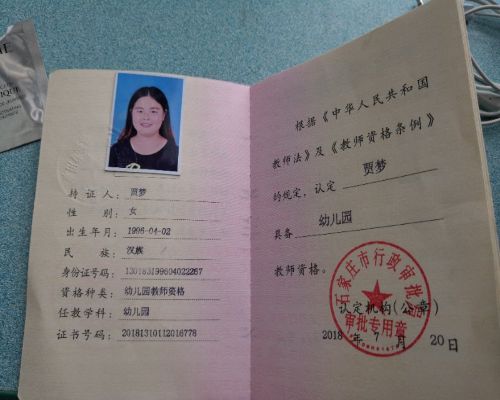 持证人：贾梦
性别：女
出生年月：1996-04-02
民族：汉族
身份证号码：130183199604022267
资格种类：幼儿园教师资格
任教学科：幼儿园
证书号码：20181310112016778
根据《中华人民共和国
教师法》及《教师资格条例》
的规定，认定 贾梦
具备 幼儿园
教师资格。
石家庄市行政审批局
审批专用章
认定机构(公章)
2018 年 7 月 20 日